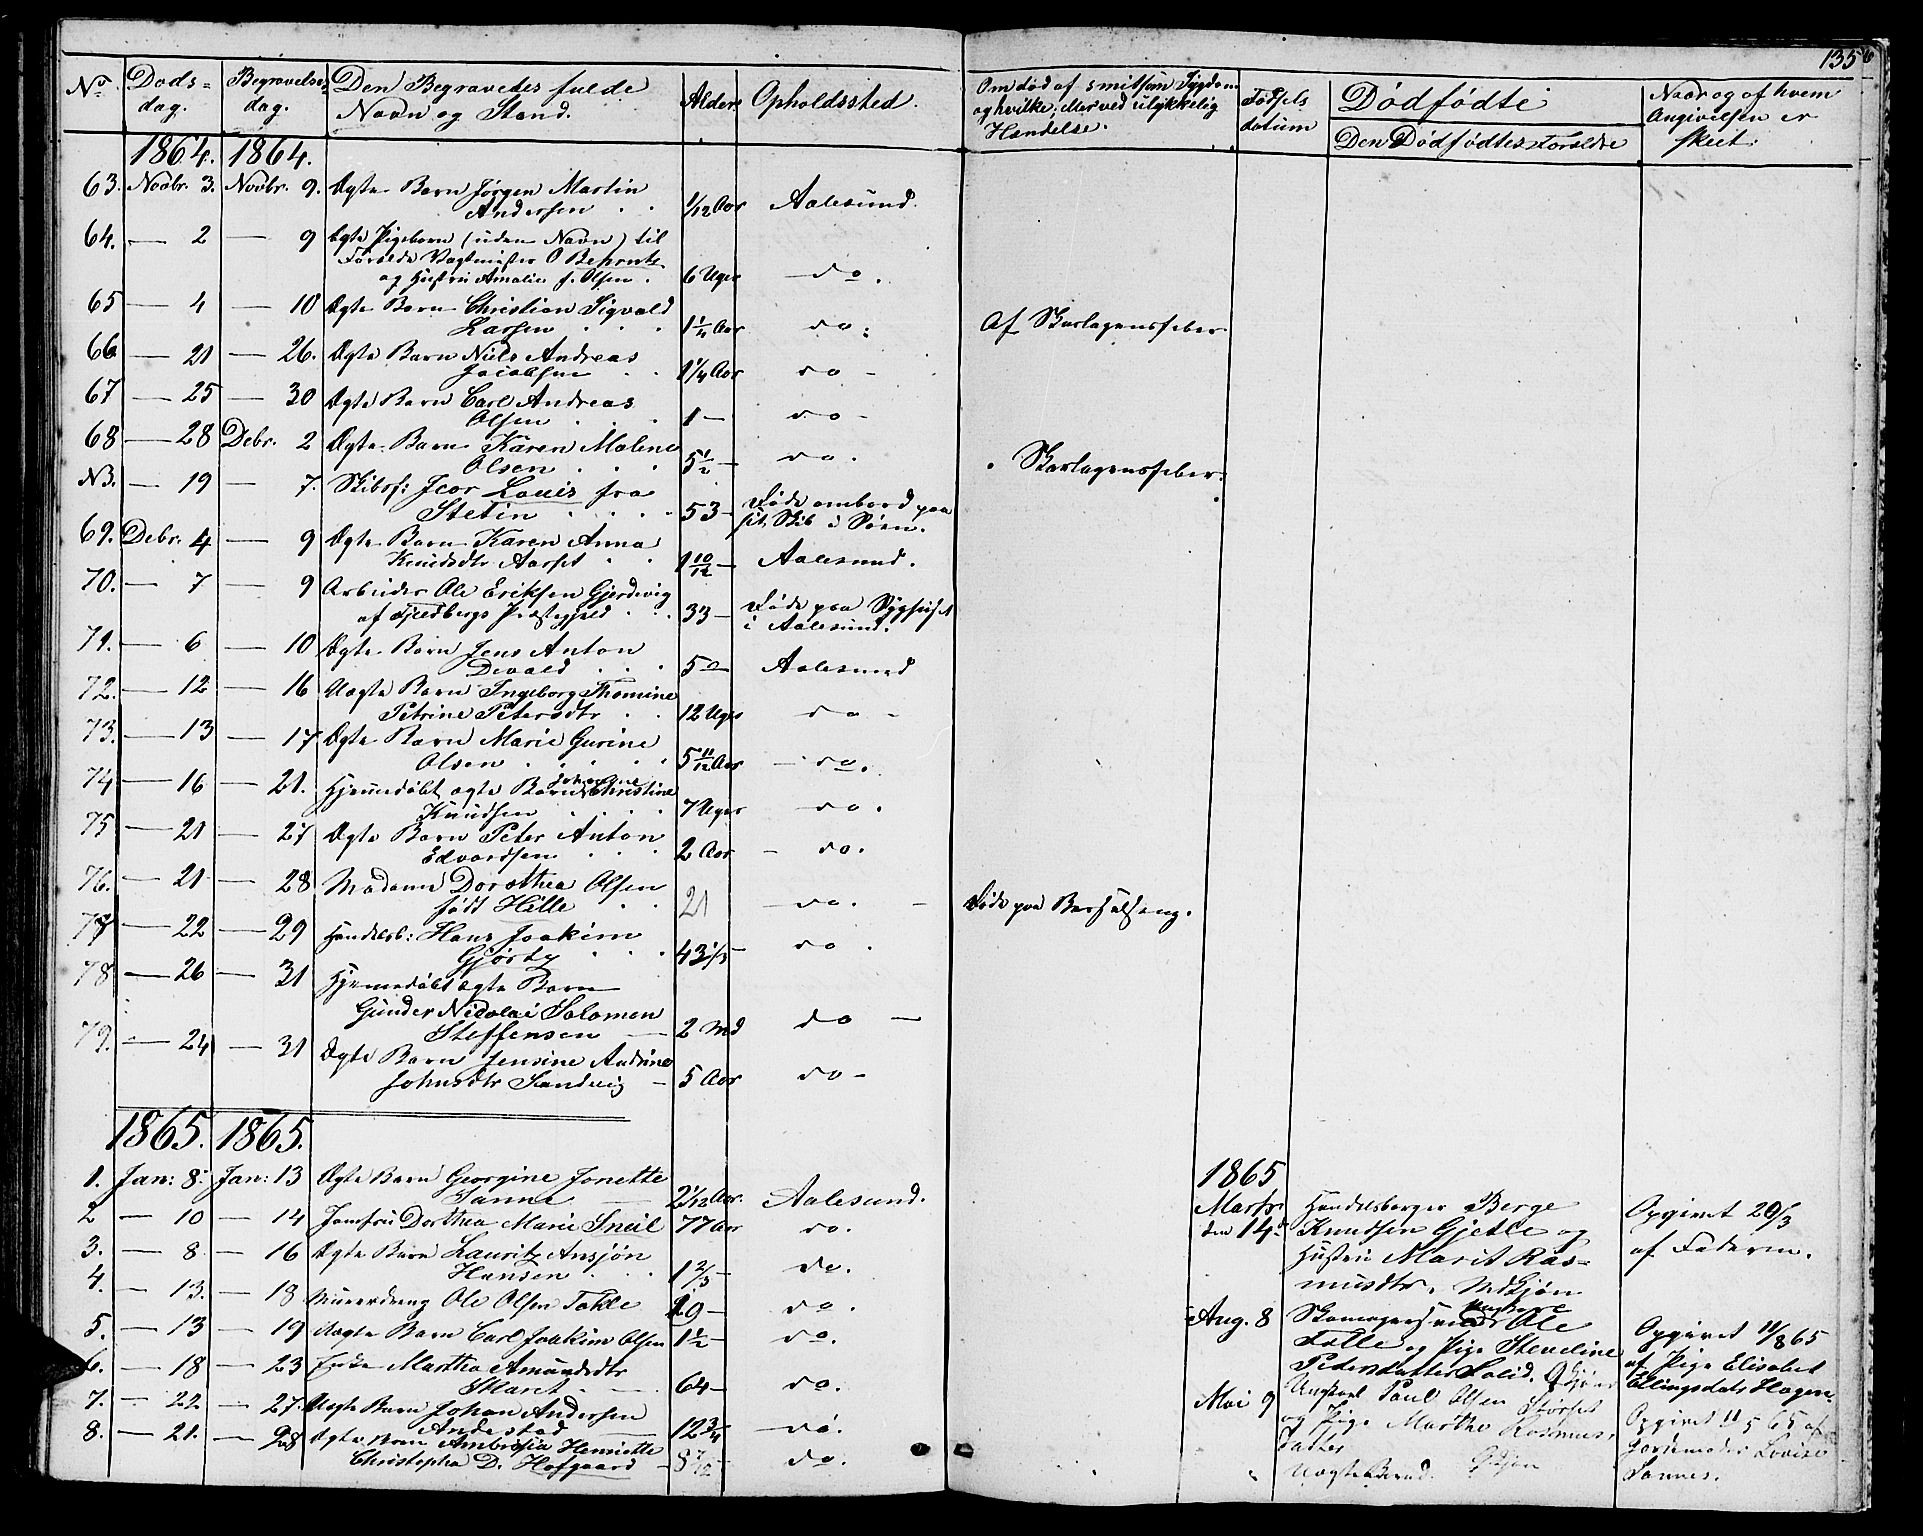 135
No. Døds- Begravelses- Den Begravedes fulde Alder Opholdssted.
dag. dag. Navn og Stand.
Om død af smitsom Sygdom Fødsels Dødfødte Naar og af hvem
og hvilke; eller ved ulykkelig datum Den Dødfødtes Forældre Angivelsen er
Hændelse. skeet.
1864. 1864.
63. Novbr. 3. Novbr. 9. Ægte Barn Jørgen Martin
Andersen . . 1/12 Aar Aalesund
64. — 2 — 9 Ægte Pigebarn (uden Navn) til
Forældre Vagtmester O Behrntz
og Hustru Amalie f. Olsen . 6 Uger — do .
65 — 4 — 10 Ægte Barn Christian Sigvald
Larsen . . . 1 1/4 Aar do. Af Skarlagensfeber
66 — 21 — 26. Ægte Barn Niels Andreas
Jacobsen . . 1 1/4 Aar do -
67 — 25 — 30 Ægte Barn Carl Andreas
Olsen . . . 1 — do -
68 — 28 Debr. 2 Ægte Barn Karen Malene
Olsen . . . 5 1/2 — do . Skarlagensfeber.
N3. — 19 — 7. Skibsf: Icor Louis fra
Stetin . . . . 53 — Døde ombord paa
sit Skib i Søen.
69. Debr. 4 — 9 Ægte Barn Karen Anna
Knudsdtr Aarset . . 1 10/12 — Aalesund.
70. — 7 — 9 Arbeider Ole Eriksen Gjerdevig
af Fjeldbergs Præstegjeld . . 33 — Døde paa Sygehuset
i Aalesund.
71. — 6 — 10 Ægte Barn Jens Anton
Devold . . . 5 — Aalesund
72. — 12 — 16 Uægte Barn Ingeborg Thomine
Petrine Petersdtr . . 12 Uger do -
73. — 13 — 17 Ægte Barn Marie Gurine
Olsen . . . . . 5 11/12 Aar — do.
74 — 16 — 21. Hjemmedøbt ægte Barn Johanne Christine
Knudsen . . . . 7 Uger do .
75 — 21 — 27 Ægte Barn Peter Anton
Edvardsen . . . 2 Aar — do.
76. — 21 — 28 Madame Dorothea Olsen
født Hille . . 21 — do. — Døde paa Barselseng.
77 — 22 — 29 Handelsb: Hans Joakim
Gjørtz . . . 43 1/3 — do .
78 — 26 — 31 Hjemmedøbt ægte Barn
Gunder Nicolai Salomon
Steffensen — 2 Md do —
79. — 24 — 31 Ægte Barn Jensine Andrine
Johnsdtr Sandvig — 5 Aar do -
1865. 1865.
1. Jan: 8. Jan: 13 Ægte Barn Georgine Jonette
Sanne — 2 1/12 Aar. Aalesund.
2 — 10 — 14 Jomfru Dorthea Marie Sneil 77 Aar do.
3. — 8 — 16 Ægte Barn Lauritz Ansjøn
Hansen . . . 1 2/3 — do.
4. — 13. — 18 Murerdreng Ole Olsen Tolle 19 — do .
5. — 13 — 19 Uægte Barn Carl Joakim Olsen 1 1/2 — do.
6. — 18 — 23 Enke Martha Amundsdtr
Skaret . — 64 — do.
7. — 22 — 27. Uægte Barn Johan Andersen
Andestad — 12 3/4 do.
8. — 21. — 28 Ægte Barn Ambrosia Henriette
Christopha D. Hofgaard — 8 7/12 — do.
1865
Marts Handelsborger Berge Opgivet 20/3
den 14de Knudsen Gjetle og af Faderen.
Hustru Marit Ras-
musdtr. Mdkjøn
Aug. 8 Skomagersvend Ungkarl Ole Opgivet 11/8 65
Tolle og Pige Steveline af Pige Elisabet
Pedersdatter Solid. Qkjøn Ellingsdatr Hagen
Mai 9 Ungkarl Paul Olsen Storset Opgivet 11 5 65 af
og Pige Marthe Rasmus- Jordemoder Lovise
datter Sannes.
Uægte Barn. Qkjøn